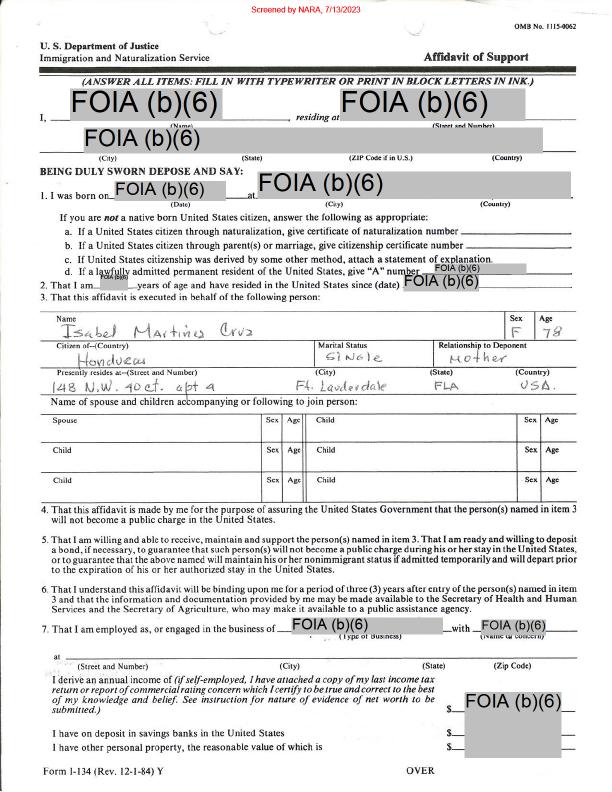 Screened by NARA, 7/13/2023
OMB No. 1115-0062
U. S. Department of Justice
Immigration and Naturalization Service Affidavit of Support
(ANSWER ALL ITEMS: FILL IN WITH TYPEWRITER OR PRINT IN BLOCK LETTERS IN INK.)
I, FOIA (b)(6) , residing at FOIA (b)(6)
(Name) (Street and Number)
FOIA (b)(6)
(City) (State) (ZIP Code if in U.S.) (Country)
BEING DULY SWORN DEPOSE AND SAY:
1. I was born on FOIA (b)(6) at FOIA (b)(6)
(Date) (City) (Country)
If you are not a native born United States citizen, answer the following as appropriate:
a. If a United States citizen through naturalization, give certificate of naturalization number
b. If a United States citizen through parent(s) or marriage, give citizenship certificate number
c. If United States citizenship was derived by some other method, attach a statement of explanation.
d. If a lawfully admitted permanent resident of the United States, give "A" number FOIA (b)(6)
2. That I am FOIA (b)(6) years of age and have resided in the United States since (date) FOIA (b)(6)
3. That this affidavit is executed in behalf of the following person:
Name Sex Age
Isabel Martines Cruz F 78
Citizen of--(Country) Marital Status Relationship to Deponent
Honduras Single Mother
Presently resides at--(Street and Number) (City) (State) (Country)
148 N.W. 40 ct. apt 4 Ft. Lauderdale FLA USA.
Name of spouse and children accompanying or following to join person:
Spouse Sex Age Child Sex Age
Child Sex Age Child Sex Age
Child Sex Age Child Sex Age
4. That this affidavit is made by me for the purpose of assuring the United States Government that the person(s) named in item 3
will not become a public charge in the United States.
5. That I am willing and able to receive, maintain and support the person(s) named in item 3. That I am ready and willing to deposit
a bond, if necessary, to guarantee that such person(s) will not become a public charge during his or her stay in the United States,
or to guarantee that the above named will maintain his or her nonimmigrant status if admitted temporarily and will depart prior
to the expiration of his or her authorized stay in the United States.
6. That I understand this affidavit will be binding upon me for a period of three (3) years after entry of the person(s) named in item
3 and that the information and documentation provided by me may be made available to the Secretary of Health and Human
Services and the Secretary of Agriculture, who may make it available to a public assistance agency.
7. That I am employed as, or engaged in the business of FOIA (b)(6) with FOIA (b)(6)
(Type of Business) (Name of concern)
at
(Street and Number) (City) (State) (Zip Code)
I derive an annual income of (if self-employed, I have attached a copy of my last income tax
return or report of commercial rating concern which I certify to be true and correct to the best
of my knowledge and belief. See instruction for nature of evidence of net worth to be
submitted.) $ FOIA (b)(6)
I have on deposit in savings banks in the United States $
I have other personal property, the reasonable value of which is $
Form I-134 (Rev. 12-1-84) Y OVER